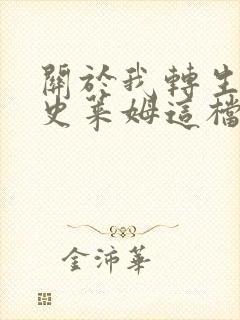 關於我轉生
史萊姆這檔
金沛華